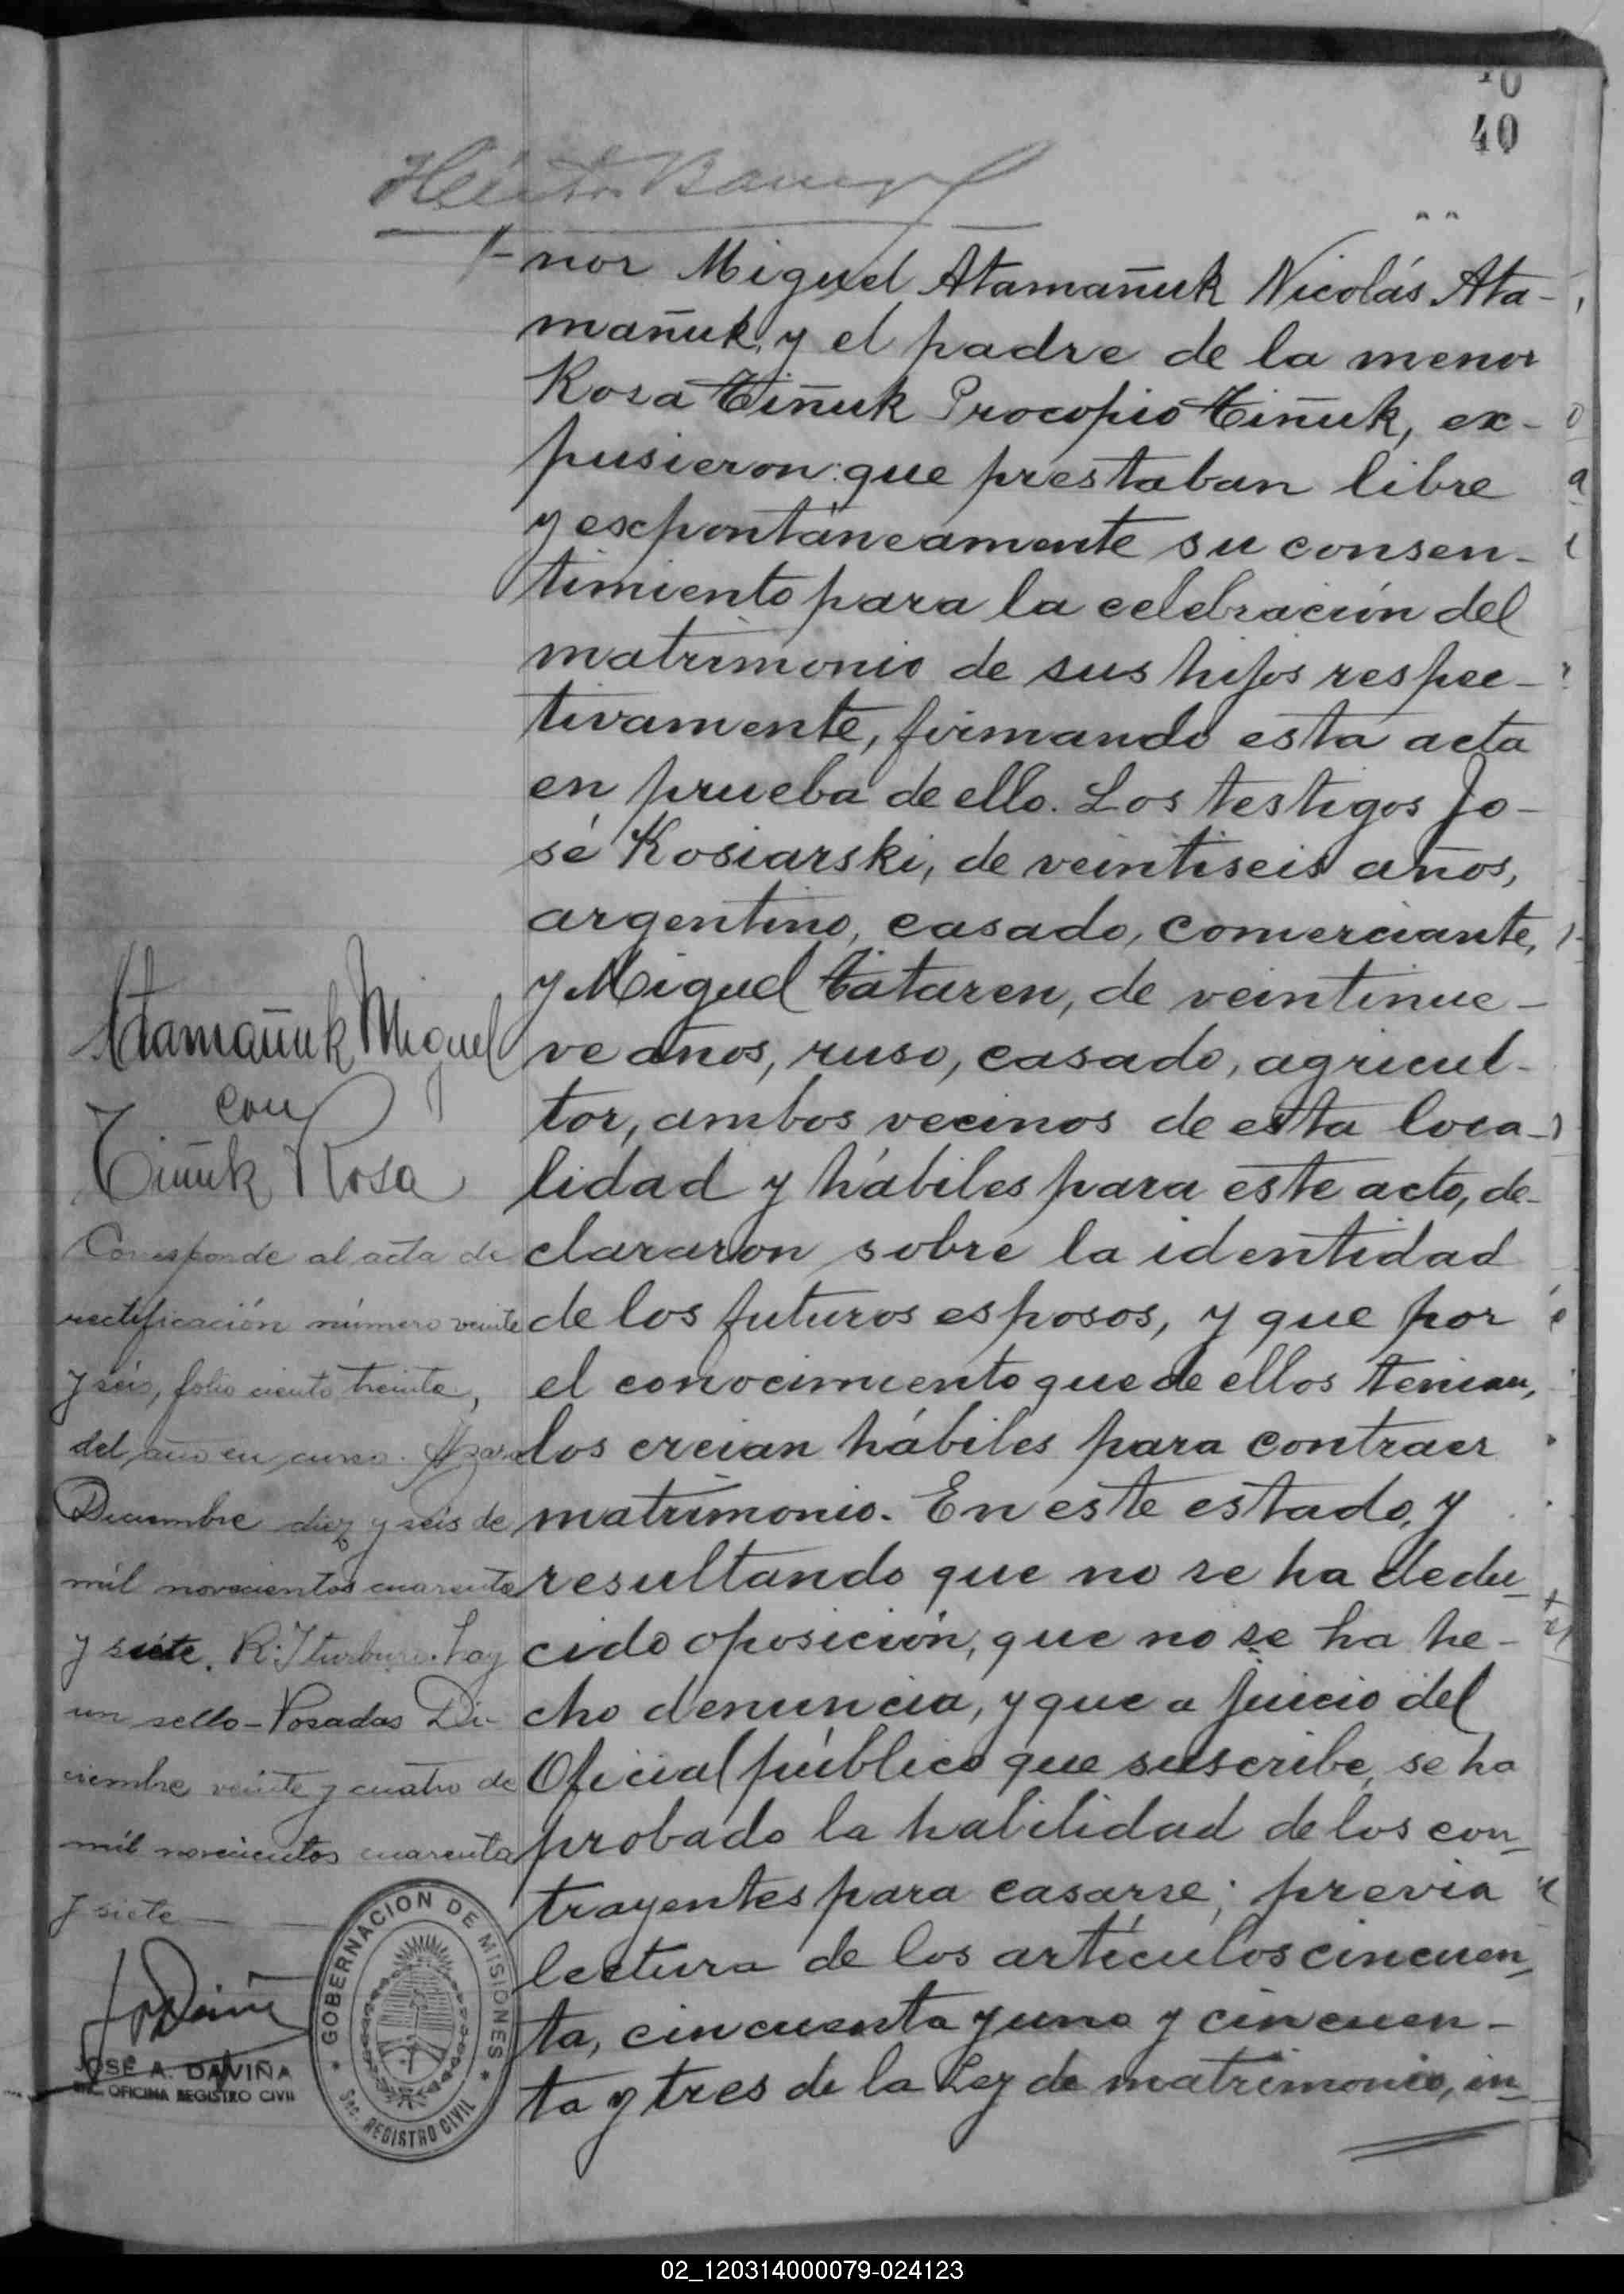 40
Héctor
nor Miguel Atamañuk Nicolás Ata-
mañuk, y el padre de la menor
Rosa Tiñuk Procopio Tiñuk, ex-
pusieron: que prestaban libre
y expontáneamente su consen-
timiento para la celebración del
matrimonio de sus hijos respec-
tivamente, firmando esta acta
en prueba de ello. Los testigos Jo-
sé Kosiarski, de veintiseis años,
argentino, casado, comerciante,
y Miguel Tataren, de veintinue-
ve años, ruso, casado, agricul-
tor, ambos vecinos de esta loca-
lidad y hábiles para este acto, de-
clararon sobre la identidad
de los futuros esposos, y que por
el conocimiento que de ellos tenian,
los creian hábiles para contraer
matrimonio. En este estado, y
resultando que no se ha dedu-
cido oposición, que no se ha he-
cho denuncia, y que a juicio del
Oficial público que suscribe, se ha
probado la habilidad de los con-
trayentes para casarse; previa
lectura de los artículos cincuen-
ta, cincuenta y uno y cincuen-
ta y tres de la Ley de matrimonio, in-
Atamañuk Miguel
con
Tiñuk Rosa
Corresponde al acta de
rectificación número veinte
y seis, folio ciento treinta,
del año en curso. Azara
Diciembre diez y seis de
mil novecientos cuarenta
y siete. R. Iturburu. hay
un sello - Posadas Di-
ciembre veinte y cuatro de
mil novecientos cuarenta
y siete
JOSÉ A. DAVIÑA
ENC. OFICINA REGISTRO CIVIL
GOBERNACION DE MISIONES
Sec. REGISTRO CIVIL
02_120314000079-024123